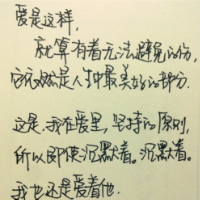 爱是这样，
就算有着无法避免的伤，
它仍然是人生中最美好的部分．
这是，我在爱里，坚持的原则，
所以即使沉默着。沉默着。
我也还是爱着他．